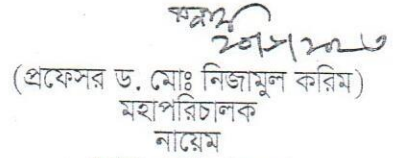 (প্রফেসর ড. মোঃ নিজামুল করিম)
মহাপরিচালক
নায়েম